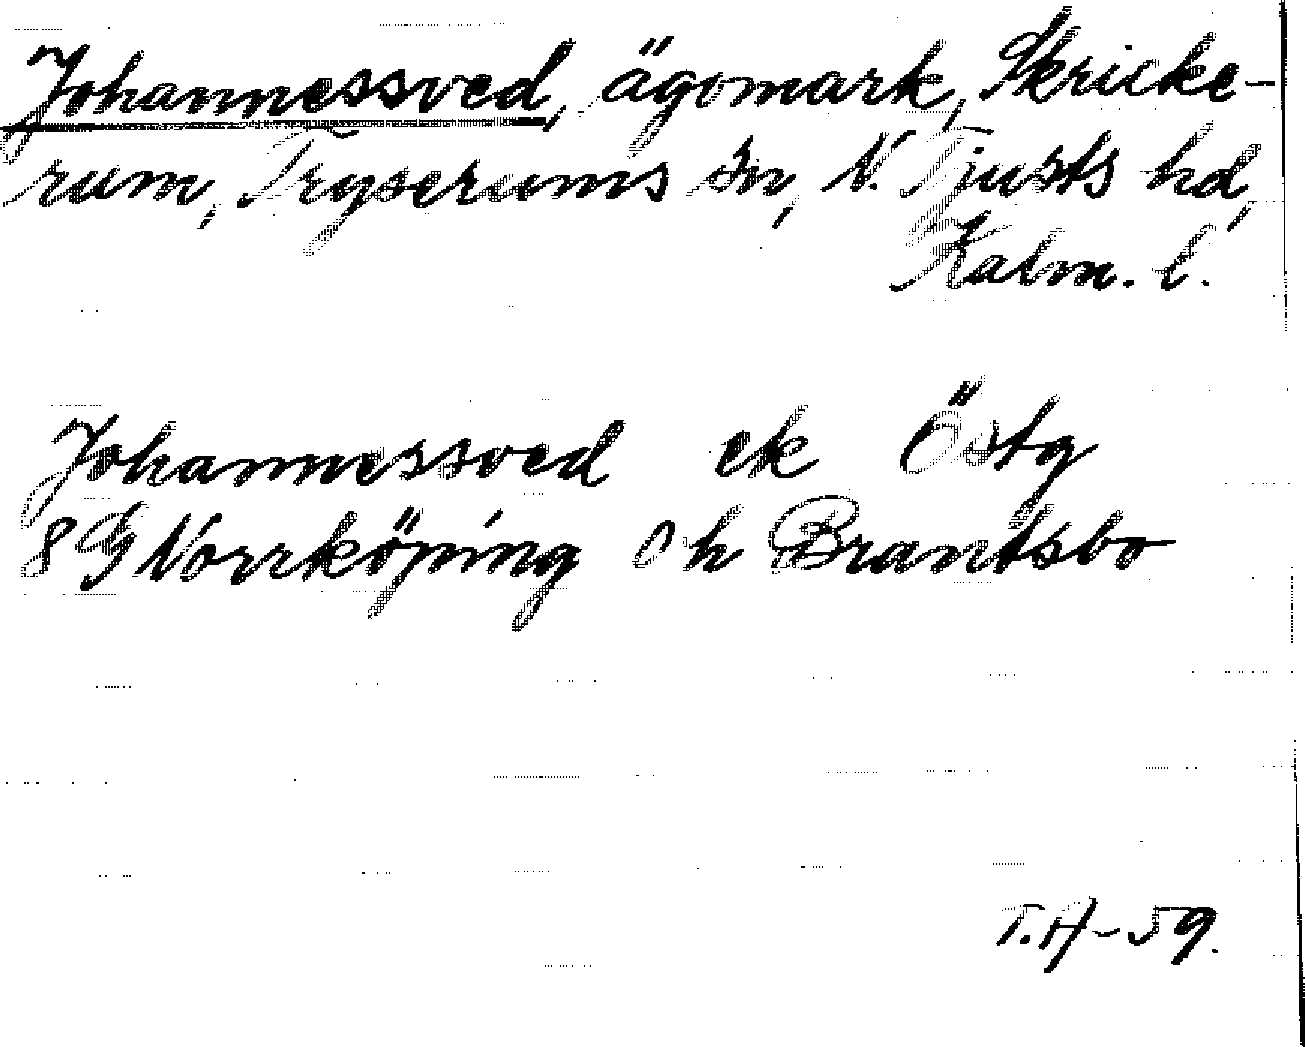 Johannessved, ägomark, Skricke-
rum, Tryserums sn, N. Tjusts hd,
Kalm. l.
Johannessved ek Östg
8G Norrköping Öh Brantsbo
T.H-59.